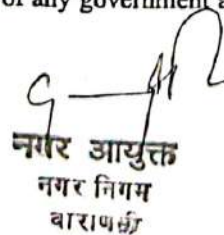 of any government a
नगर आयुक्त
नगर निगम
वाराणसी